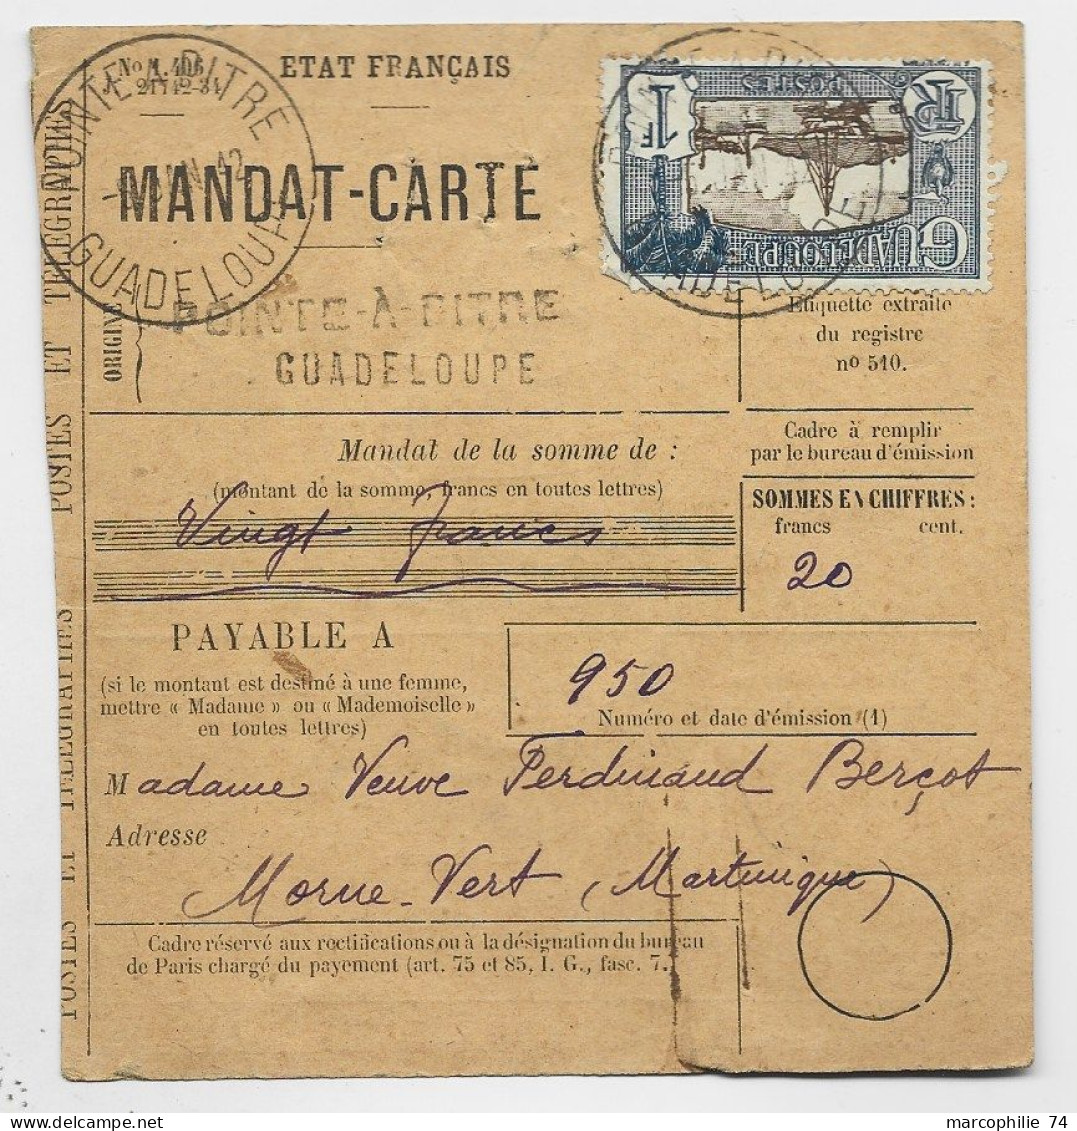 No M. 406
21712-34
ETAT FRANÇAIS
MANDAT-CARTE
POINTE A PITRE
JUIN 42
GUADELOUPE
1F
RF
POSTES
GUADELOUPE
ORIGINE
POINTE-A-PITRE
GUADELOUPE
Etiquette extraite
du registre
no 510.
Mandat de la somme de :
(montant de la somme, francs en toutes lettres)
Vingt francs
Cadre à remplir
par le bureau d'émission
SOMMES EN CHIFFRES :
francs cent.
20
PAYABLE A
(si le montant est destiné à une femme,
mettre « Madame » ou « Mademoiselle »
en toutes lettres)
950
Numéro et date d'émission (1)
Madame Veuve Ferdinand Berçot
Adresse
Morne-Vert (Martinique)
Cadre réservé aux rectifications ou à la désignation du bureau
de Paris chargé du payement (art. 75 et 85, I. G., fasc. 7.)
POSTES ET TÉLÉGRAPHES POSTES ET TÉLÉGRAPHES
marcophilie 74